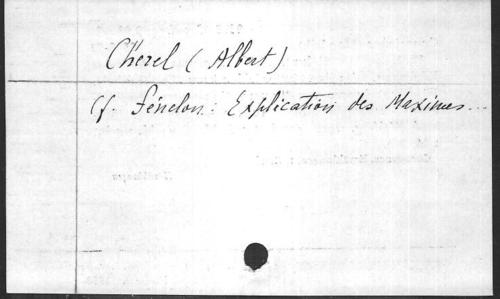 Chérel (Albert)
Cf. Fénelon : Explication des Maximes...